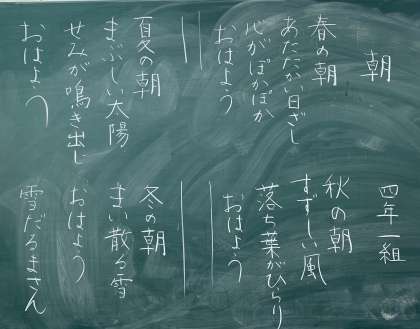 朝
四年一組
春の朝
あたたかい日ざし
心がぽかぽか
おはよう
夏の朝
まぶしい太陽
せみが鳴き出し
おはよう
秋の朝
すずしい風
落ち葉がひらり
おはよう
冬の朝
まい散る雪
おはよう
雪だるまさん